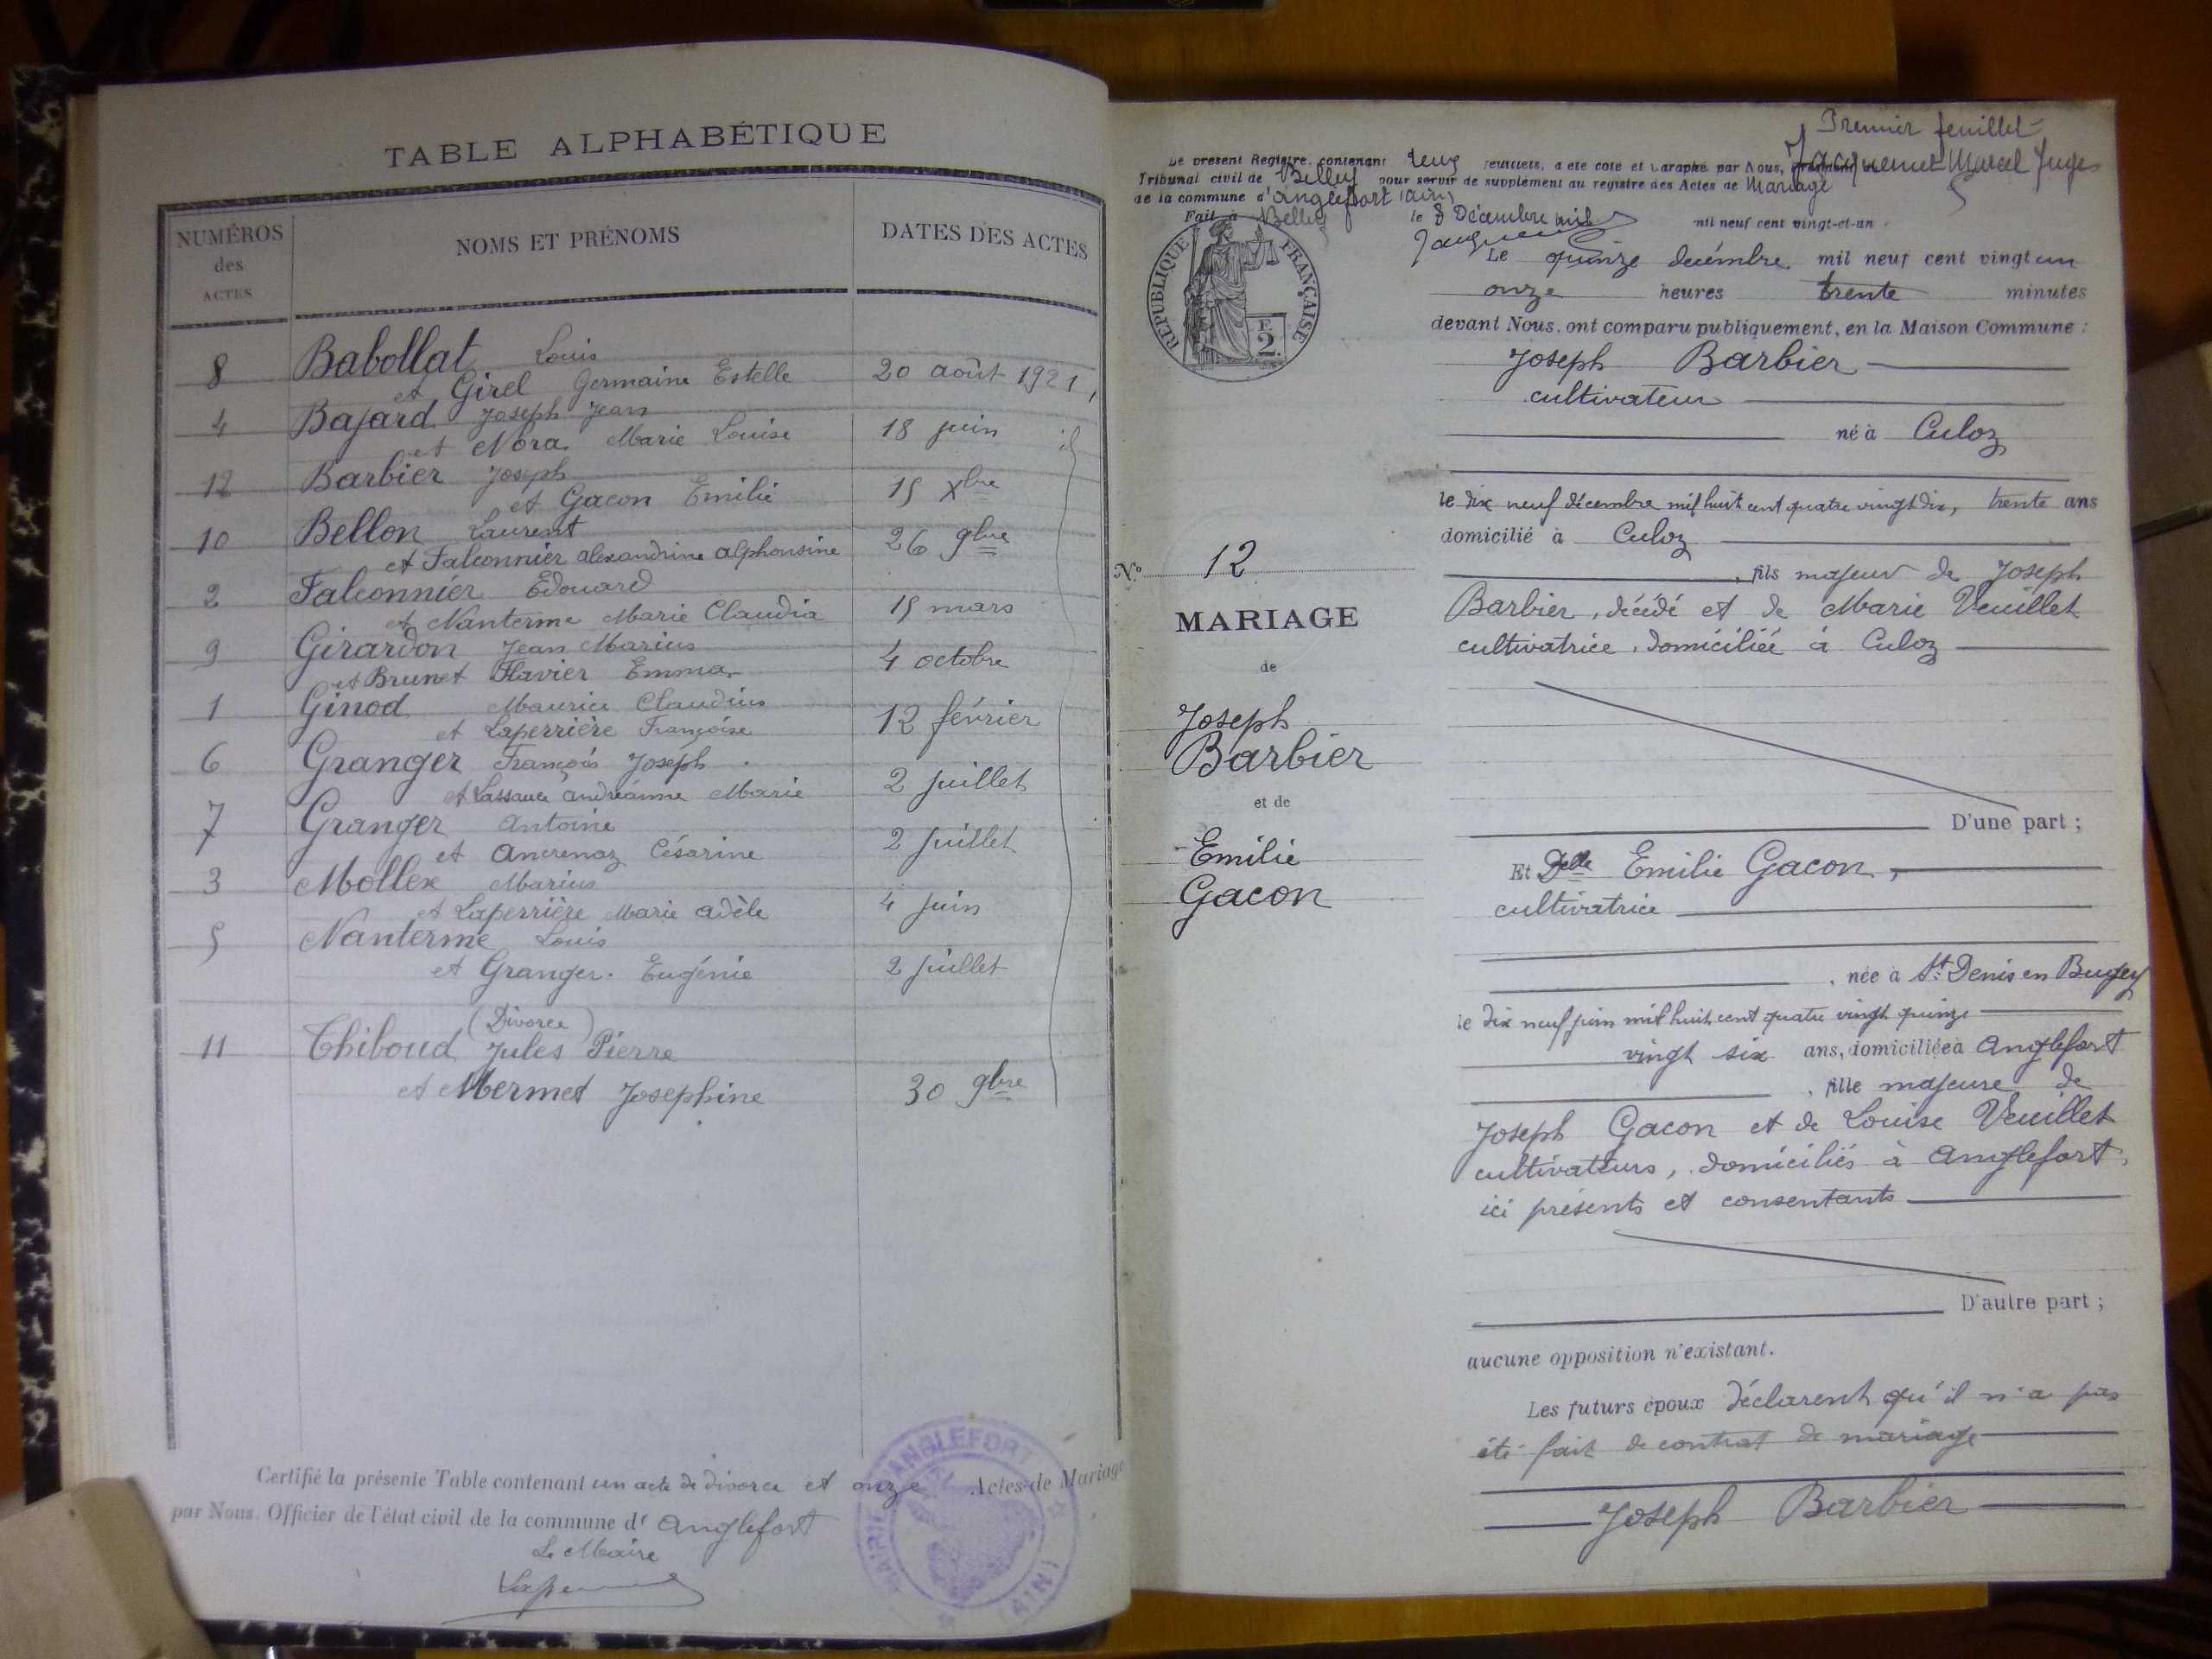 TABLE ALPHABÉTIQUE
NUMÉROS des ACTES
NOMS ET PRÉNOMS
DATES DES ACTES
8 Babollat Louis
et Girel Germaine Estelle 20 août 1921,
4 Bajard Joseph Jean
et Nora Marie Louise 18 juin
12 Barbier Joseph
et Gacon Emilie 15 Xbre
10 Bellon Laurent
et Falconnier alexandrine alphonsine 26 9bre
2 Falconnier Edouard
et Nanterme Marie Claudia 15 mars
9 Girardon Jean Marius
et Brunet Flavier Emma 4 octobre
1 Ginod Maurice Claudius
et Laperrière Françoise 12 février
6 Granger François Joseph
et Lassauce andréanne Marie 2 juillet
7 Granger Antoine
et Ancrenaz Césarine 2 juillet
3 Mollex Marius
et Laperrière Marie adèle 4 juin
5 Nanterme Louis
et Granger Eugénie 2 juillet
(Divorce)
11 Thiboud Jules Pierre
et Mermet Josephine 30 9bre
Certifié la présente Table contenant un acte de divorce et onze Actes de Mariage
par Nous, Officier de l'état civil de la commune d' Anglefort
Le Maire
MAIRIE D'ANGLEFORT
(AIN)
Premier feuillet
Le présent Registre, contenant deux feuillets, a été coté et paraphé par Nous, Jacquemet Marcel Juge
Tribunal civil de Belley pour servir de supplément au registre des Actes de Mariage
de la commune d'anglefort (ain)
Fait à Belley le 8 Décembre mil mil neuf cent vingt-et-un
RÉPUBLIQUE FRANÇAISE
F. 2.
Le quinze décembre mil neuf cent vingt un
onze heures trente minutes
devant Nous, ont comparu publiquement, en la Maison Commune :
Joseph Barbier
cultivateur
né à Culoz
le dix neuf décembre mil huit cent quatre vingt dix, trente ans
domicilié à Culoz
N° 12
, fils majeur de Joseph
Barbier, décédé et de Marie Veuillet
cultivatrice, domiciliée à Culoz
MARIAGE
de
Joseph
Barbier
et de
Emilie
Gacon
D'une part ;
Et Delle Emilie Gacon,
cultivatrice
, née à St Denis en Bugey
le dix neuf juin mil huit cent quatre vingt quinze
vingt six ans, domiciliée à Anglefort
, fille majeure de
Joseph Gacon et de Louise Veuillet
cultivateurs, domiciliés à Anglefort,
ici présents et consentants
D'autre part ;
aucune opposition n'existant.
Les futurs époux déclarent qu'il n'a pas
été fait de contrat de mariage
Joseph Barbier